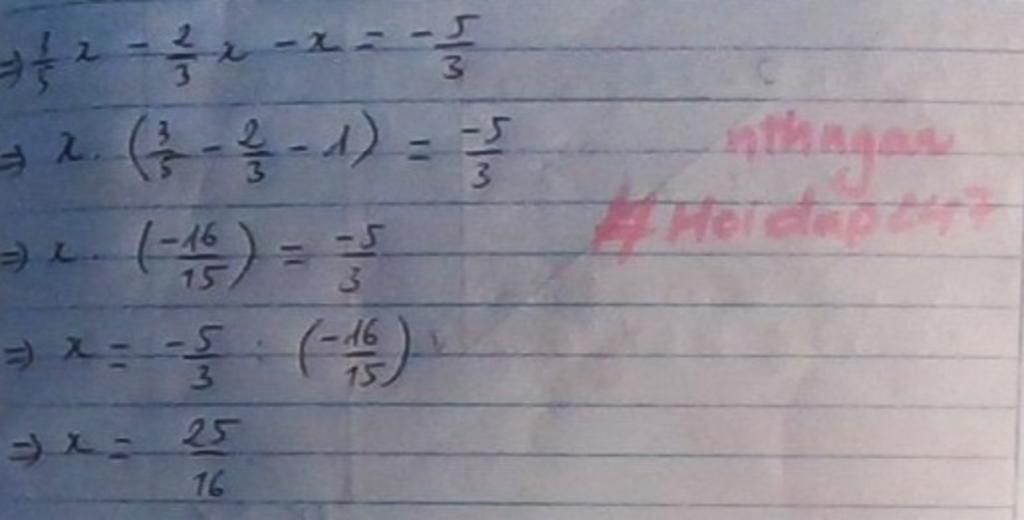 ⇒ 3/5 x - 2/3 x - x = - 5/3
⇒ x . (3/5 - 2/3 - 1) = -5/3
⇒ x . (-16/15) = -5/3
⇒ x = -5/3 : (-16/15)
⇒ x = 25/16
nthngan
# Hoidap247